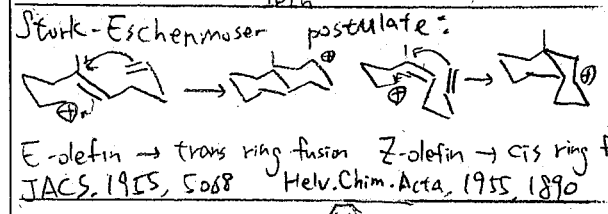 Stork-Eschenmoser postulate:
⊕ ⊕ ⊕ ⊕
E-olefin → trans ring fusion Z-olefin → cis ring f
JACS, 1955, 5068 Helv. Chim. Acta, 1955, 1890